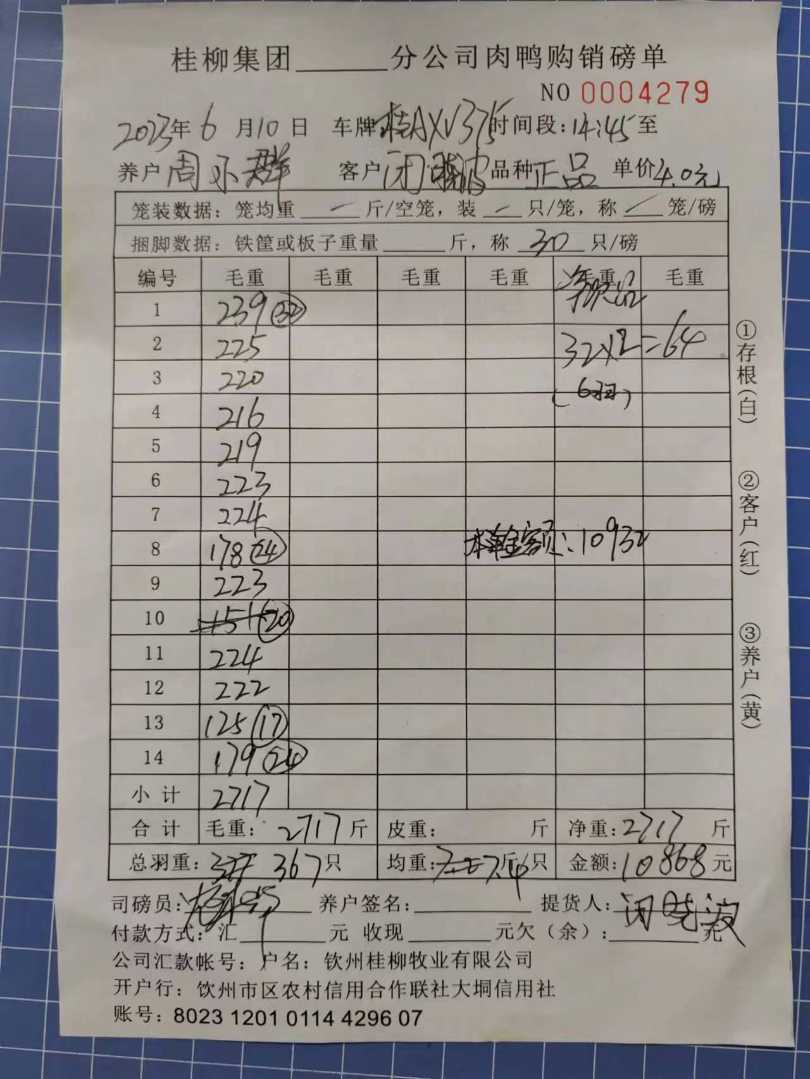 桂柳集团______分公司肉鸭购销磅单
NO 0004279
2023年6月10日 车牌桂AXV375时间段:14:45至
养户周 群 客户闭 波品种正品 单价4.0元
笼装数据:笼均重 — 斤/空笼,装 — 只/笼,称 — 笼/磅
捆脚数据:铁筐或板子重量____斤,称 30 只/磅
编号 毛重 毛重 毛重 毛重 毛重 毛重
1 239(32)
2 225 32×2=64
3 220
4 216
5 219
6 223
7 224
8 178(24) 本单金额:10932
9 223
10 151(20)
11 224
12 222
13 125(17)
14 179(24)
小计 2717
合计 毛重:2717斤 皮重: 斤 净重:2717斤
总羽重:367只 均重:7.4斤/只 金额:10868元
司磅员: 养户签名:______ 提货人:闭晓波
付款方式:汇______元 收现______元欠(余):______元
公司汇款帐号:户名:钦州桂柳牧业有限公司
开户行:钦州市区农村信用合作联社大垌信用社
账号:8023 1201 0114 4296 07
①存根(白)
②客户(红)
③养户(黄)